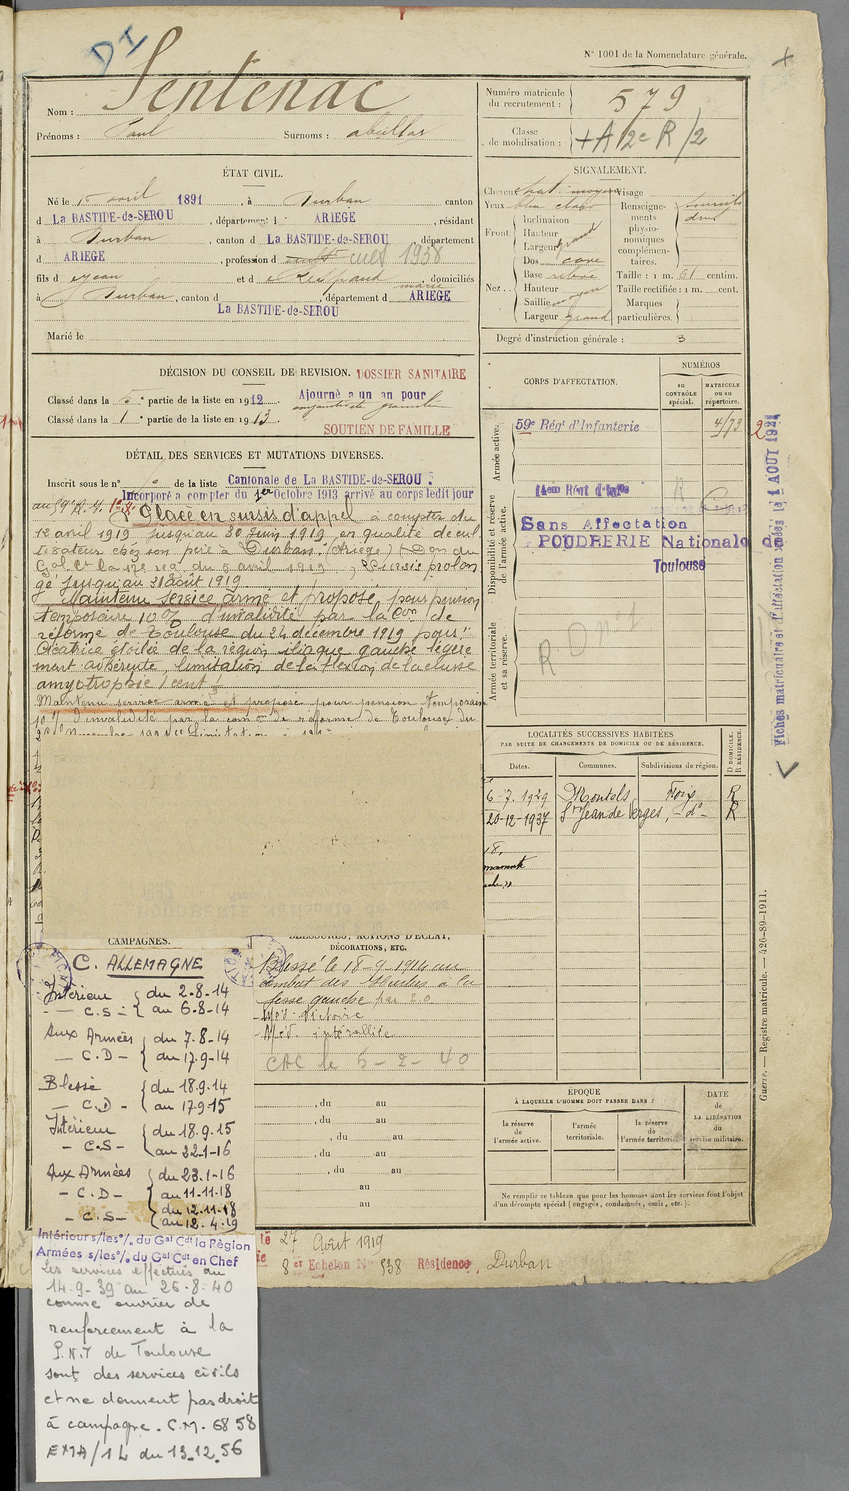 N° 1001 de la Nomenclature générale.
DI
Nom : Sentenac
Prénoms : Paul Surnoms :
Numéro matricule du recrutement : 579
Classe de mobilisation : +A 2e R/2
ÉTAT CIVIL.
Né le 15 avril 1891, à Durban canton
d La BASTIDE-de-SEROU, département d ARIEGE, résidant
à Durban, canton d La BASTIDE-de-SEROU, département
d ARIEGE, profession d cult cult 1938
fils d Jean et d Respaud, domiciliés
à Durban, canton d La BASTIDE-de-SEROU, département d ARIEGE
Marié le
SIGNALEMENT.
Cheveux chat. moyen Visage
Yeux bleu clair
Front. Inclinaison
Hauteur
Largeur grand
Nez.. Dos cave
Base
Hauteur moyen
Saillie moyen
Largeur grand
Renseignements physionomiques complémentaires. sourcils droit
Taille : 1 m. 61 centim.
Taille rectifiée : 1 m. cent.
Marques particulières.
Degré d'instruction générale : 3
DÉCISION DU CONSEIL DE REVISION. DOSSIER SANITAIRE
Classé dans la 5e partie de la liste en 1912. Ajourné a un an pour
conjonctivite granuleuse
Classé dans la 1e partie de la liste en 1913.
SOUTIEN DE FAMILLE
DÉTAIL DES SERVICES ET MUTATIONS DIVERSES.
Inscrit sous le n° de la liste Cantonale de La BASTIDE-de-SEROU.
Incorporé a compter du 1er Octobre 1913 arrivé au corps ledit jour
au 59e R.I.
Placé en sursis d'appel à compter du
12 avril 1919, jusqu'au 30 juin 1919, en qualité de cul
tivateur chez son père à Durban (Ariège) (Don du
Gal Ct la 17e reg. du 5 avril 1919), Sursis prolon
gé jusqu'au 31 août 1919.
Maintenu service armé et proposé pour pension
temporaire 10% d'invalidité par la Con de
réforme de Toulouse du 24 décembre 1919 pour "
Cicatrice étoilée de la région iliaque gauche légère
ment adhérente, limitation de la flexion de la cuisse
amyotrophie 1 cent ½
Maintenu service armé et proposé pour pension temporaire
10% d'invalidité par la com on de réforme de Toulouse du
CORPS D'AFFECTATION.
NUMÉROS
au CONTRÔLE spécial.
MATRICULE ou au répertoire.
Armée active.
59e Régt d'Infanterie
Disponibilité et réserve de l'armée active.
14eme Régt d'Infie
Sans Affectation
POUDRERIE Nationale de
Toulouse
Armée territoriale et sa réserve.
R D N° 1
Fiches matriculaire et d'affectation créées le 1 AOUT 1924
LOCALITÉS SUCCESSIVES HABITÉES
PAR SUITE DE CHANGEMENTS DE DOMICILE OU DE RÉSIDENCE.
Dates. Communes. Subdivisions de région. D DOMICILE. R RÉSIDENCE.
6-7-1929 Montels Foix R
20-12-1937 St Jean de Verges, -do- R
CAMPAGNES.
C. ALLEMAGNE
Intérieur du 2.8.14
- C.S - au 6.8.14
Aux Armées du 7.8.14
- C.D - du 17.9.14
Blessé du 18.9.14
- C.D - au 17.9.15
Intérieur du 18.9.15
- C.S - au 22.1.16
Aux Armées du 23.1-16
- C.D - au 11-11-18
- C.S - du 12.11.18
au 18.4.19
Intérieur s/les % du Gal Cdt la Région
Armées s/les % du Gal Cdt en Chef
Les services effectués du
14-9-39 au 26-8-40
comme ouvrier de
renforcement à la
P.N.T de Toulouse
sont des services civils
et ne donnent pas droit
à campagne. C.M. 6858
EMA/1 L du 13.12.56
BLESSURES, ACTIONS D'ÉCLAT, DÉCORATIONS, ETC.
Blessé le 18-9-1914 au
combat des Hurlus à la
fesse gauche par E.O.
Méd. Victoire
Méd. interalliée
CAC le 5-2-40
, du au
, du au
, du au
, du au
, du au
au
au
ÉPOQUE
À LAQUELLE L'HOMME DOIT PASSER DANS :
la réserve de l'armée active.
l'armée territoriale.
la réserve de l'armée territoriale.
DATE de LA LIBÉRATION du service militaire.
Ne remplir ce tableau que pour les hommes dont les services font l'objet
d'un décompte spécial (engagés, condamnés, omis, etc.).
27 Août 1919
8er Echelon N° 538 Résidence, Durban
Guerre. — Registre matricule. — 426-89-1911.